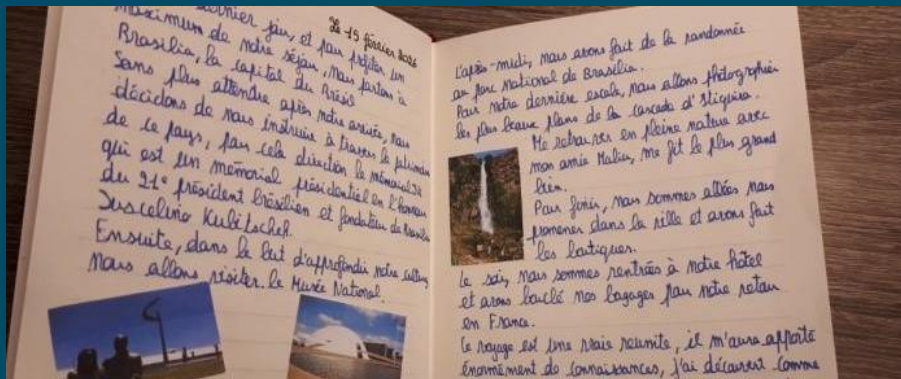 Le 15 février 2026
dernier jour, et pour profiter un
maximum de notre séjour, nous partons à
Brasilia, la capital du Brésil
Sans plus attendre après notre arrivée, nous
décidons de nous instruire à travers le patrimoine
de ce pays, pour cela direction le mémorial JK
qui est un mémorial présidentiel en l'honneur
du 21e président brésilien et fondateur de Brasilia
Juscelino Kubitschek.
Ensuite, dans le but d'approfondir notre culture,
nous allons visiter le Musée National.
L'après-midi, nous avons fait de la randonnée
au parc national de Brasilia.
Pour notre dernière escale, nous allons photographier
les plus beaux plans de la cascada d'Itiquira.
Me retrouver en pleine nature avec
mon amie Malieu, me fit le plus grand
bien.
Pour finir, nous sommes allées nous
promener dans la ville et avons fait
les boutiques.
Le soir, nous sommes rentrées à notre hôtel
et avons bouclé nos bagages pour notre retour
en France.
Ce voyage est une vraie réussite, il m'aura apporté
énormément de connaissances, j'ai découvert comme